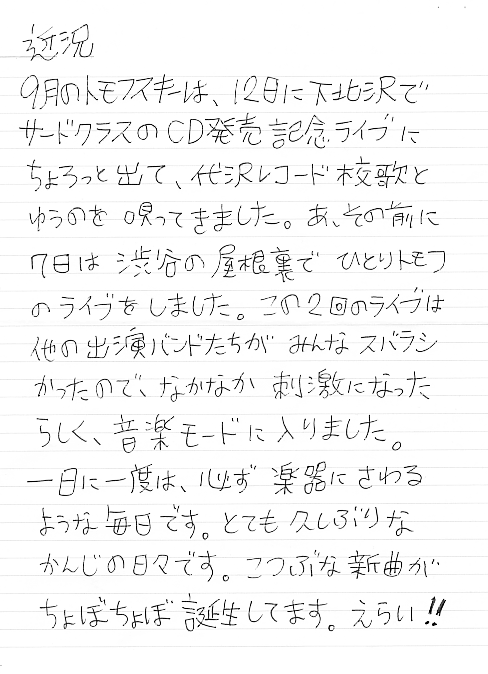 近況
9月のトモフスキーは、12日に下北沢で
サードクラスのCD発売記念ライブに
ちょろっと出て、代沢レコード校歌と
ゆうのを唄ってきました。あ、その前に
7日は渋谷の屋根裏でひとりトモフ
のライブをしました。この2回のライブは
他の出演バンドたちがみんなスバラシ
かったので、なかなか刺激になった
らしく、音楽モードに入りました。
一日に一度は、必ず楽器にさわる
ような毎日です。とても久しぶりな
かんじの日々です。こつぶな新曲が
ちょぼちょぼ誕生してます。えらい!!